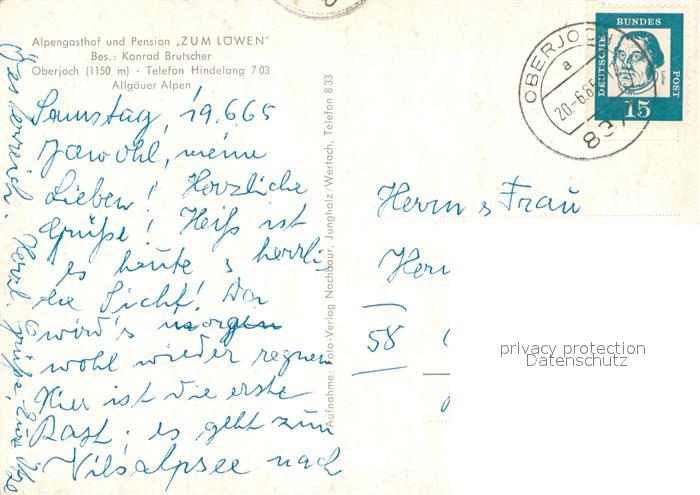 Alpengasthof und Pension „ZUM LÖWEN"
Bes.: Konrad Brutscher
Oberjoch (1150 m) · Telefon Hindelang 7 03
Allgäuer Alpen
Samstag, 19.6.65
Jawohl, meine
Lieben! Herzliche
Grüße! Heiß ist
es heute & herrli-
che Sicht! Da
wird's morgen
wohl wieder regnen
Hier ist die erste
Rast; es geht zum
Vilsalpsee nach
Österreich. Herzl. Grüße, Eure
Aufnahme: Foto-Verlag Nachbaur, Jungholz/Wertach, Telefon 8 33
OBERJOCH
a
20.-6.65
DEUTSCHE
BUNDES
POST
Luther
15
Herrn & Frau
Herr
58
privacy protection
Datenschutz